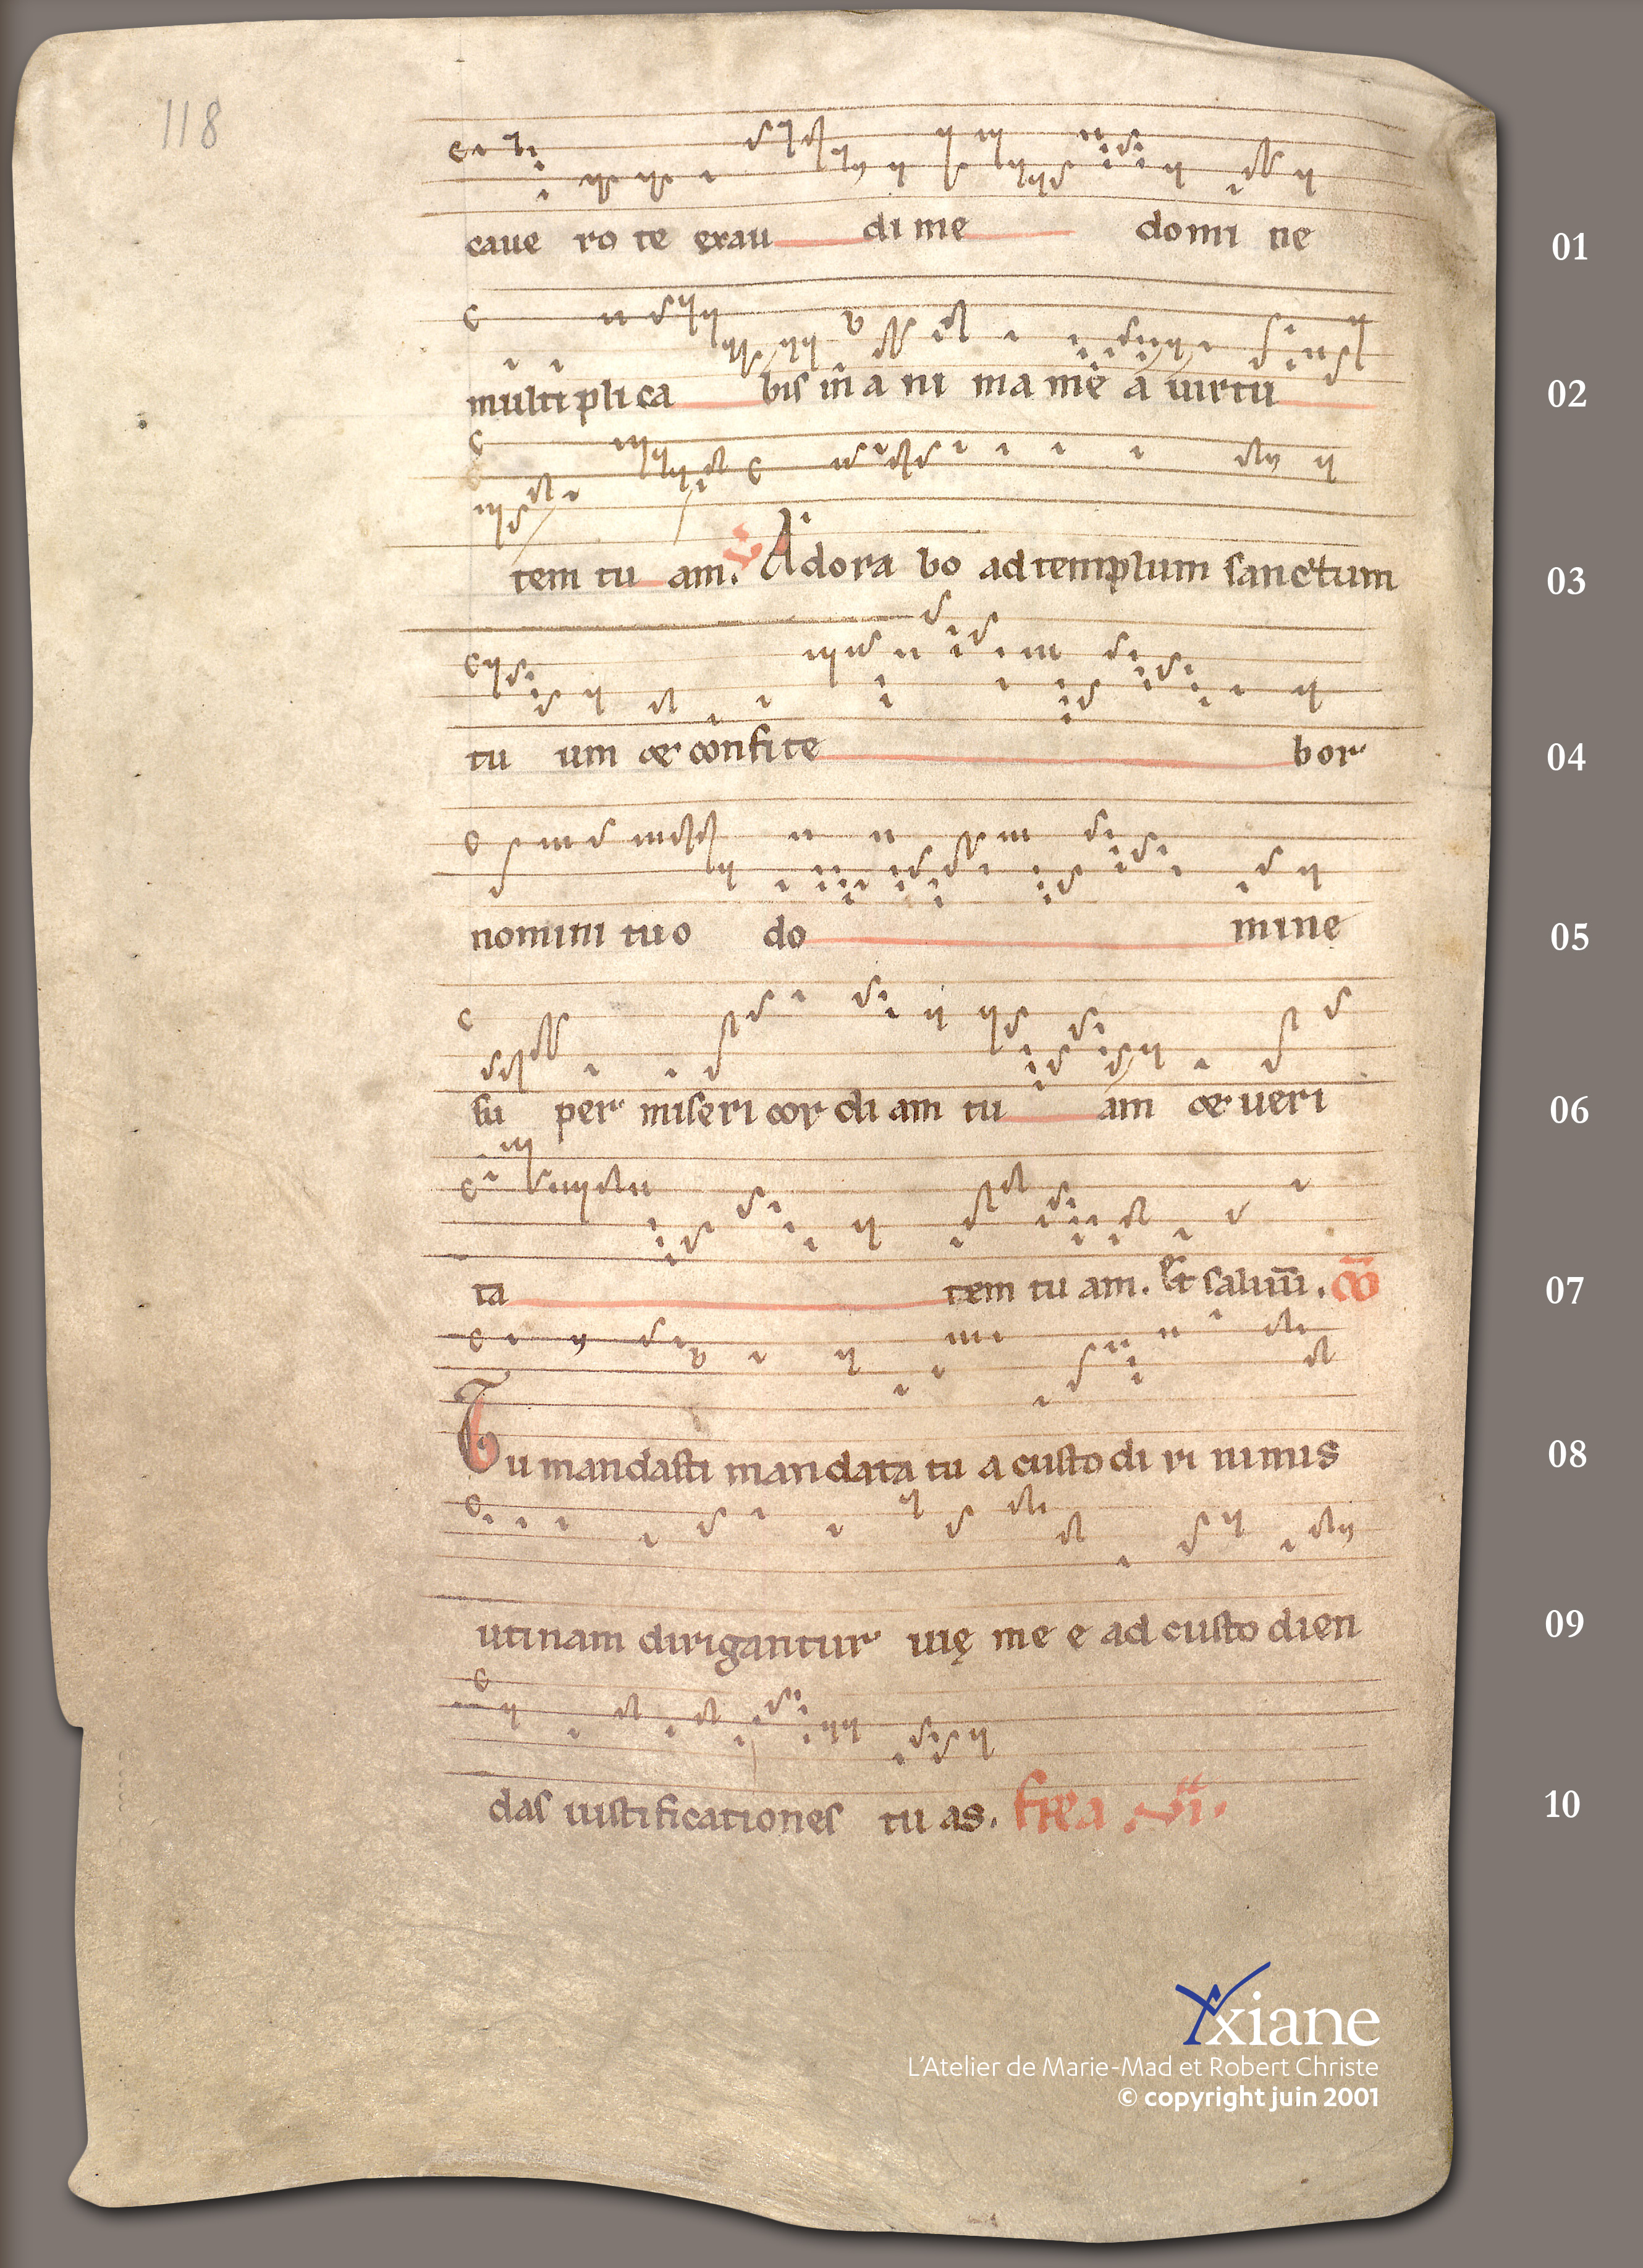 118
caue ro te exau di me domi ne
01
multi pli ca bis in a ni ma me a uirtu
02
tem tu am. V Adora bo ad templum sanctum
03
tu um & confite bor
04
nomini tuo do mine
05
su per miseri cor di am tu am & ueri
06
ta tem tu am. Et saluū. cō
07
Tu mandasti mandata tu a custo di ri nimis
08
utinam dirigantur uię me e ad custo dien
09
das iustificationes tu as. VI.
10
Yxiane
L'Atelier de Marie-Mad et Robert Christe
© copyright juin 2001